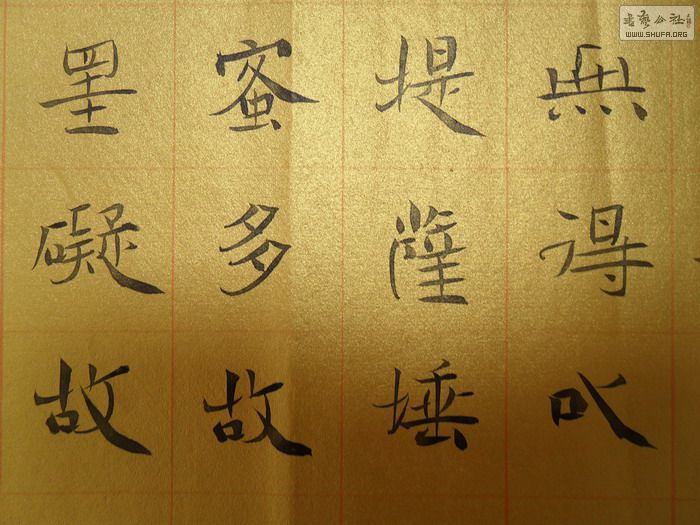 無得㕥
提薩埵
蜜多故
罣礙故
書藝公社
WWW.SHUFA.ORG